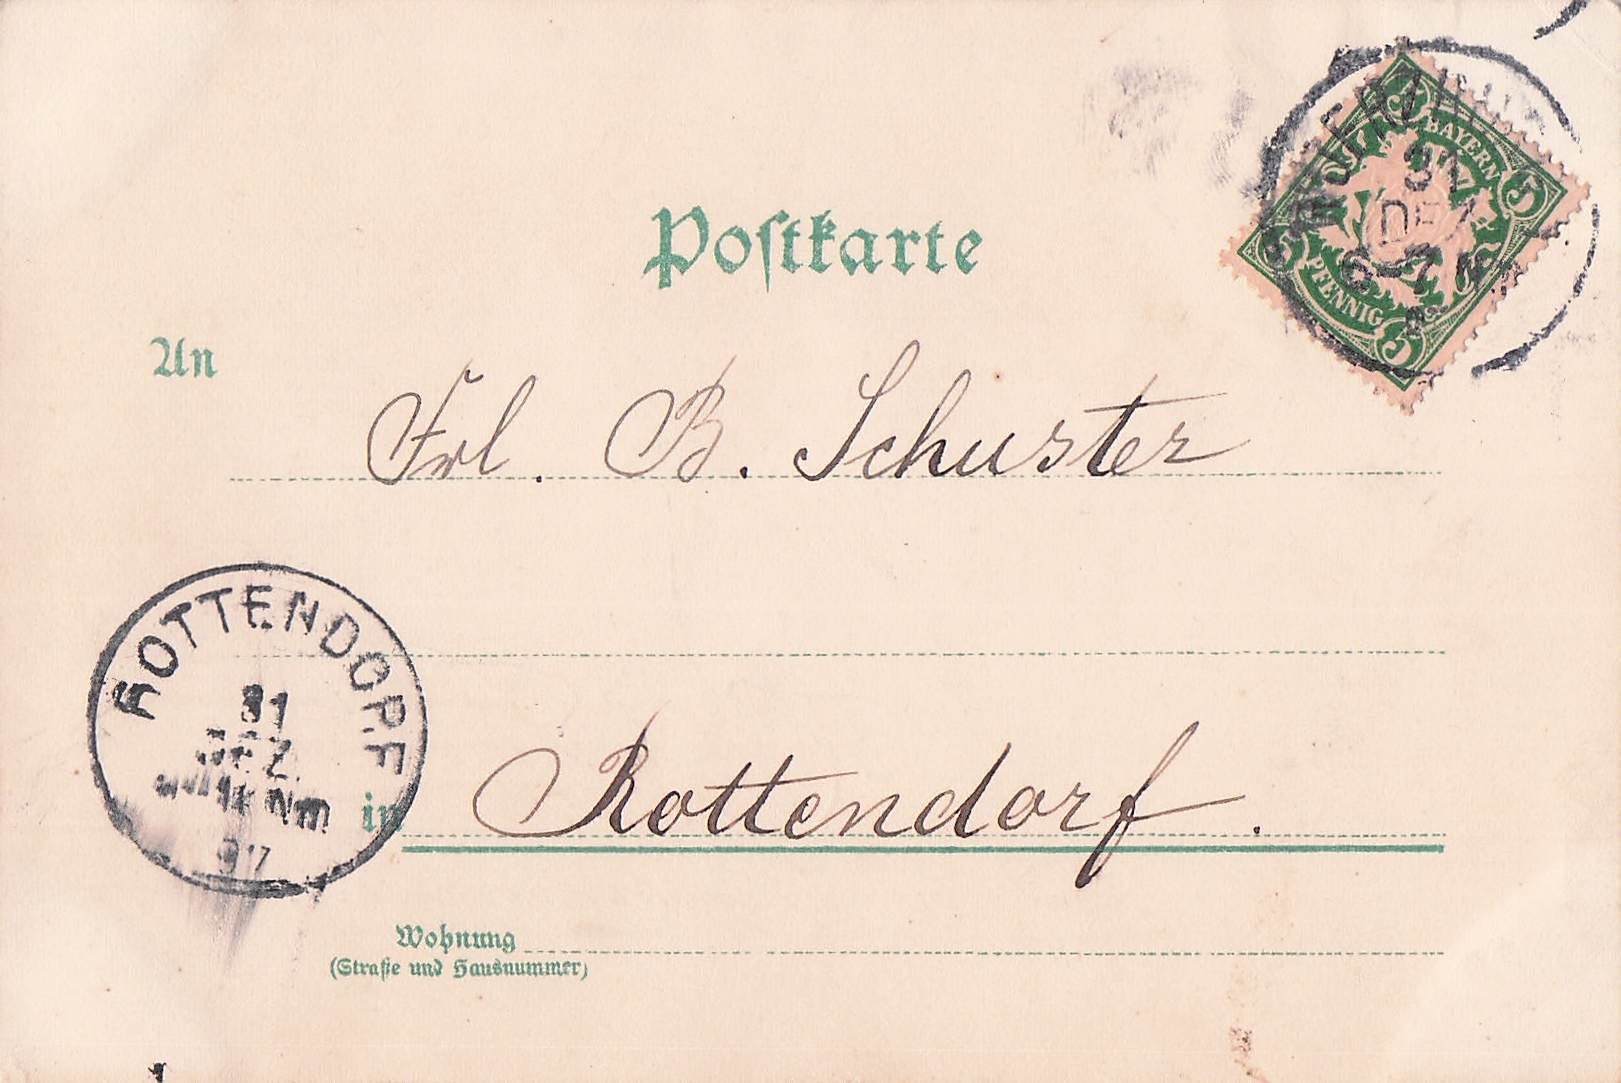 Postkarte
BAYERN
5
5
5
PFENNIG
31
DEZ
An
Frl. B. Schuster
ROTTENDORF
31
DEZ.
Nm
97
in Rottendorf.
Wohnung
(Straße und Hausnummer)